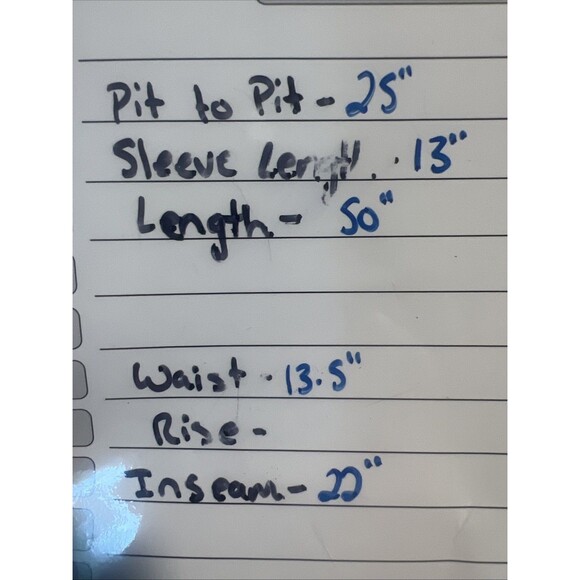 Pit to Pit - 25"
Sleeve Length - 13"
Length - 50"
Waist - 13.5"
Rise -
Inseam - 22"